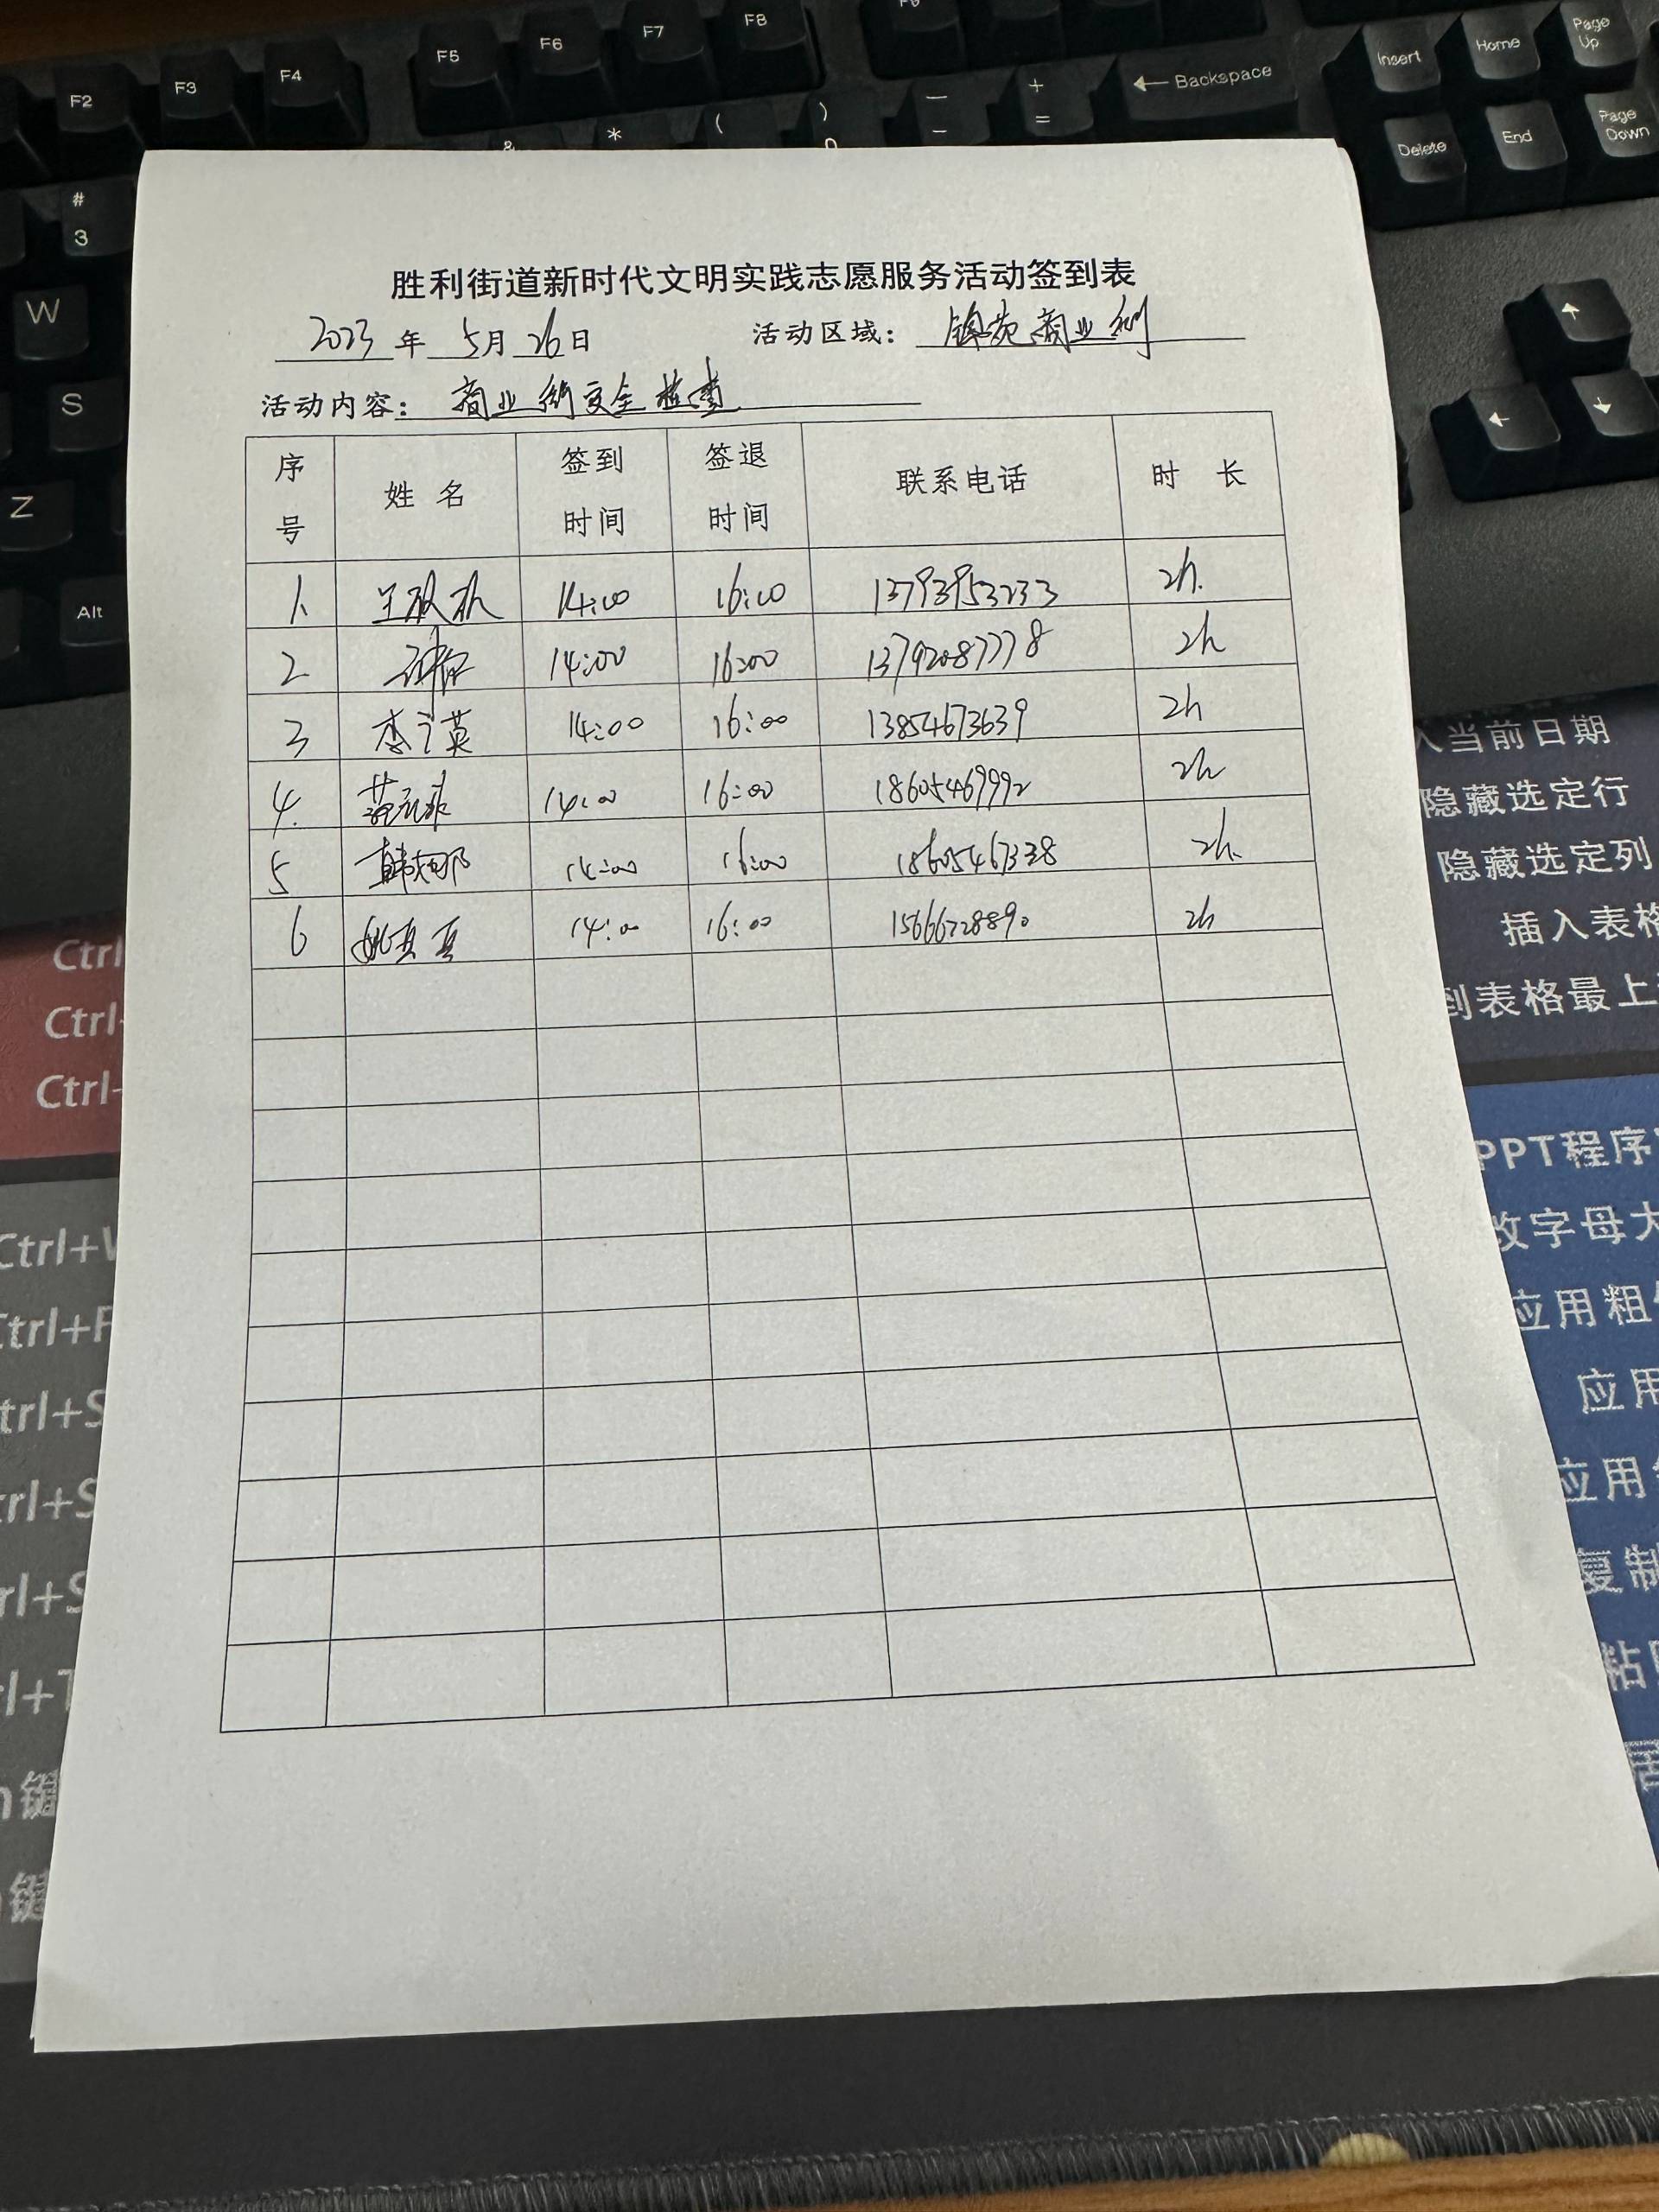 F2 F3 F4 F5 F6 F7 F8
Insert Home Page Up
Backspace
Delete End Page Down
# 3
W
S
Z
Alt
胜利街道新时代文明实践志愿服务活动签到表
2023 年 5月 26日 活动区域: 锦苑商业街
活动内容: 商业街安全检查
序号 姓名 签到时间 签退时间 联系电话 时长
1. 14:00 16:00 13793953233 2h.
2 14:00 16:00 13792087778 2h
3 14:00 16:00 13854673639 2h
4. 14:00 16:00 18605469992 2h
5 韩娜 14:00 16:00 18605467338 2h.
6 姚真真 14:00 16:00 15666728890 2h
入当前日期
隐藏选定行
隐藏选定列
插入表格
到表格最上
PPT程序
改字母大
应用粗
应用
应用
复制
粘
Ctrl
Ctrl
Ctrl
Ctrl+
Ctrl+F
Ctrl+S
Ctrl+S
键
键